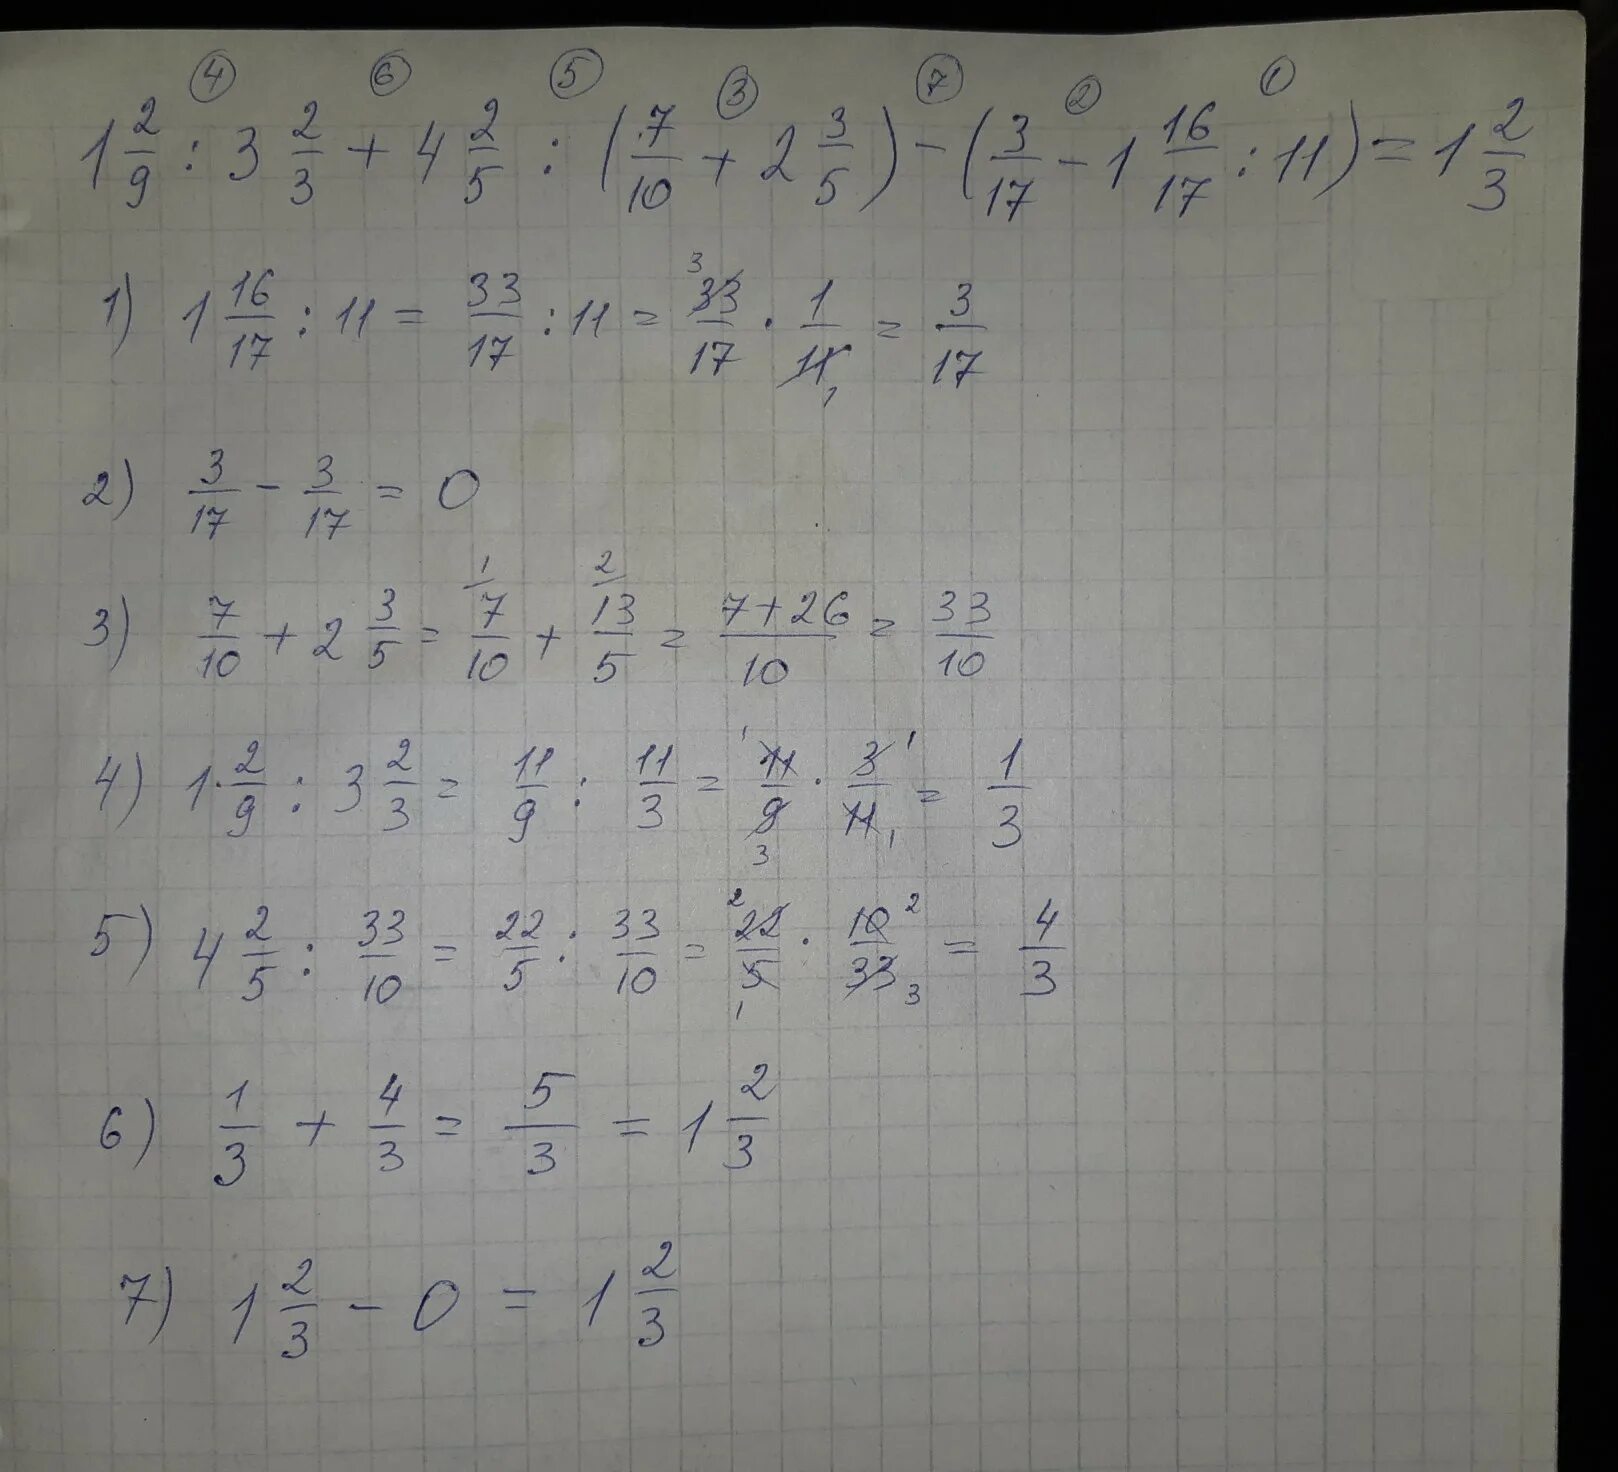 ④ ⑥ ⑤ ③ ⑦ ② ①
1 2/9 : 3 2/3 + 4 2/5 : (7/10 + 2 3/5) - (3/17 - 1 16/17 : 11) = 1 2/3
1) 1 16/17 : 11 = 33/17 : 11 = 33/17 · 1/11 = 3/17
2) 3/17 - 3/17 = 0
3) 7/10 + 2 3/5 = 7/10 + 13/5 = (7+26)/10 = 33/10
4) 1 2/9 : 3 2/3 = 11/9 : 11/3 = 11/9 · 3/11 = 1/3
5) 4 2/5 : 33/10 = 22/5 : 33/10 = 22/5 · 10/33 = 4/3
6) 1/3 + 4/3 = 5/3 = 1 2/3
7) 1 2/3 - 0 = 1 2/3